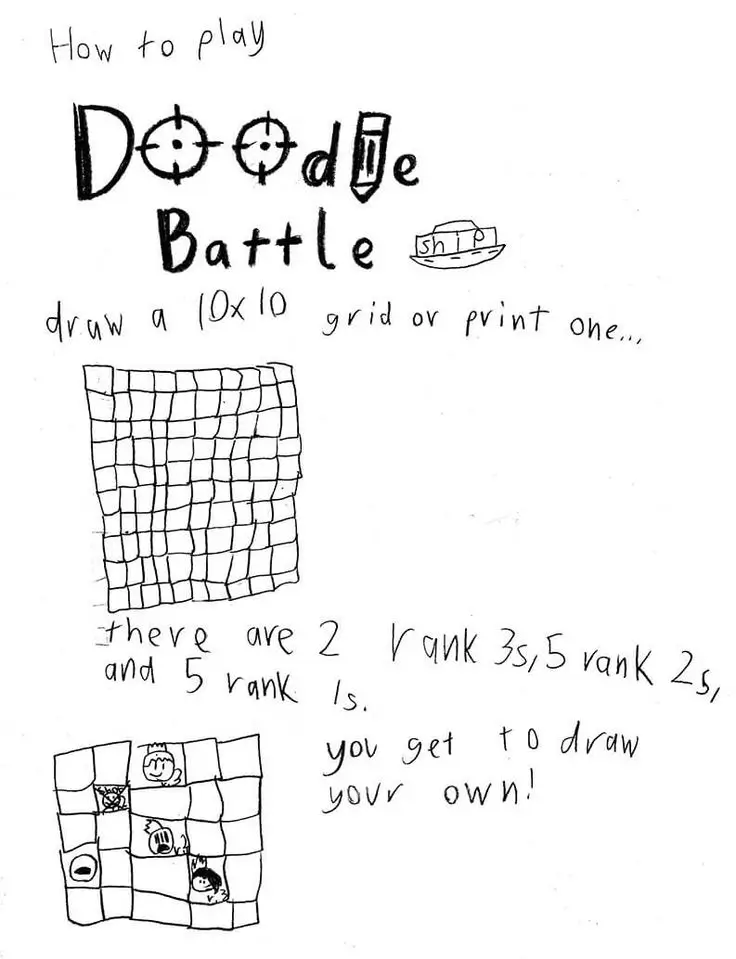 How to play
Doodle
Battle
ship
draw a 10x10 grid or print one...
there are 2 rank 3s, 5 rank 2s,
and 5 rank 1s.
you get to draw
your own!